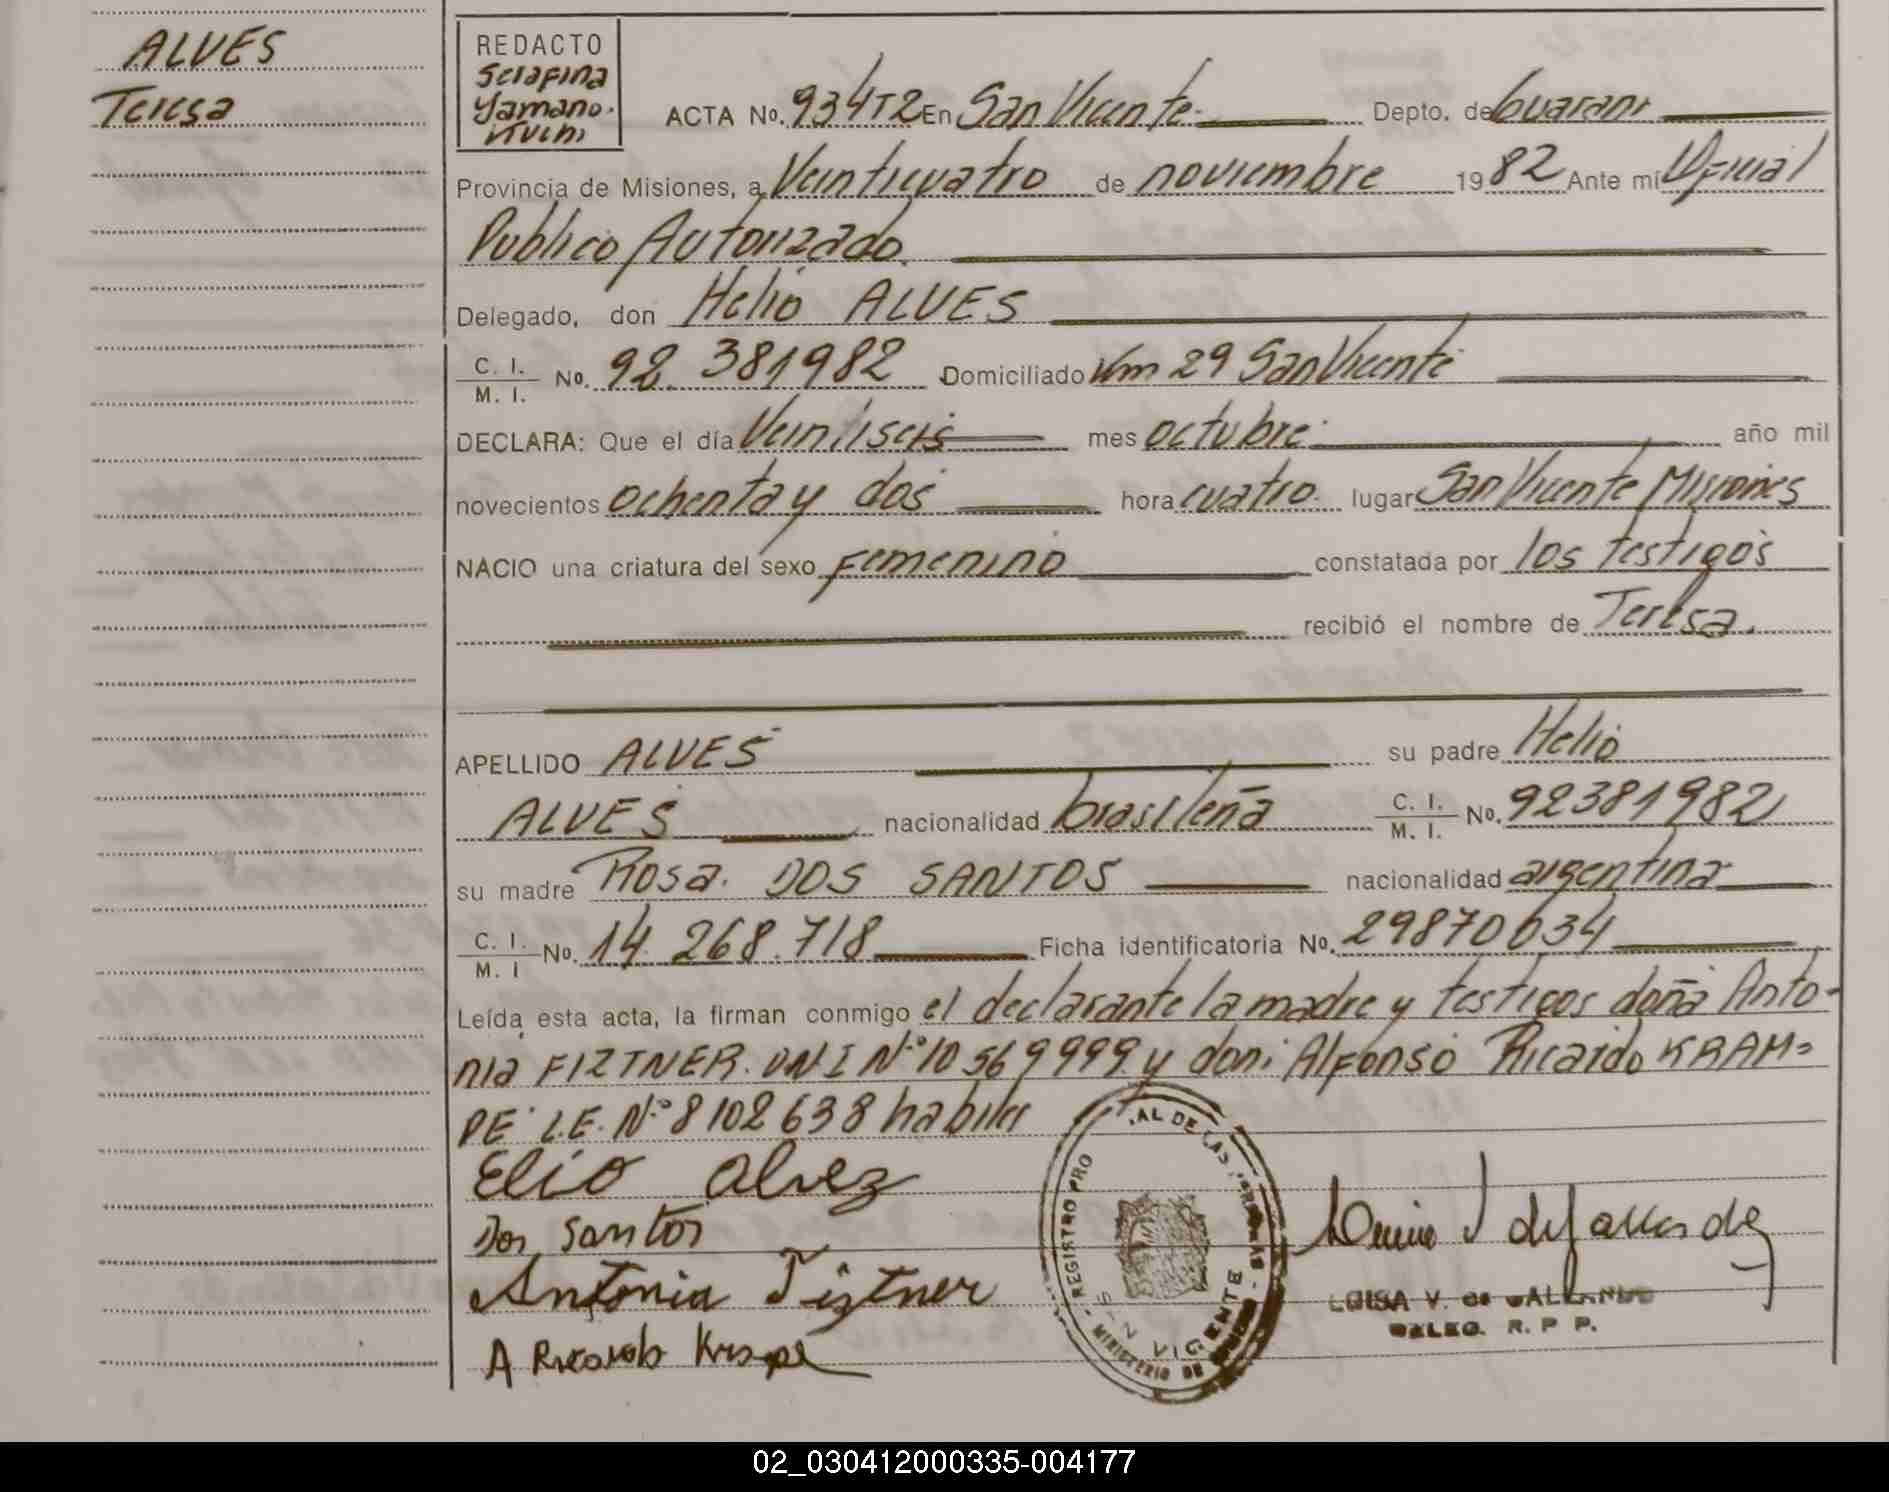 ALVES
Teresa
REDACTO
Serafina
Yamano-
ACTA No. 934T2 En San Vicente Depto. de Guaraní
Provincia de Misiones, a Veinticuatro de noviembre 1982 Ante mí Oficial
Publico Autorizado.
Delegado, don Helio ALVES
C. I.
M. I. No. 92.381982 Domiciliado Km 29 San Vicente
DECLARA: Que el día Veintiseis mes octubre año mil
novecientos ochenta y dos hora cuatro lugar San Vicente Misiones
NACIO una criatura del sexo Femenino constatada por los testigos
recibió el nombre de Teresa.
APELLIDO ALVES su padre Helio
ALVES nacionalidad brasileña C. I.
M. I. No. 92381982
su madre Rosa DOS SANTOS nacionalidad argentina
C. I.
M. I No. 14.268.718 Ficha identificatoria No. 29870634
Leída esta acta, la firman conmigo el declarante la madre y testigos doña Anto-
nia FIZTNER. DNI Nº 10569999 y don: Alfonso Ricardo KRAM-
PE L.E. Nº 8102638 habiles
Elio alvez
Dos Santos
Antonia Fiztner
A Ricardo Krampe
REGISTRO PRO AL DE LAS PERSONAS
SAN VICENTE
MINISTERIO DE
LUISA V. de GALLARDO
DELEG. R. P P.
02_030412000335-004177